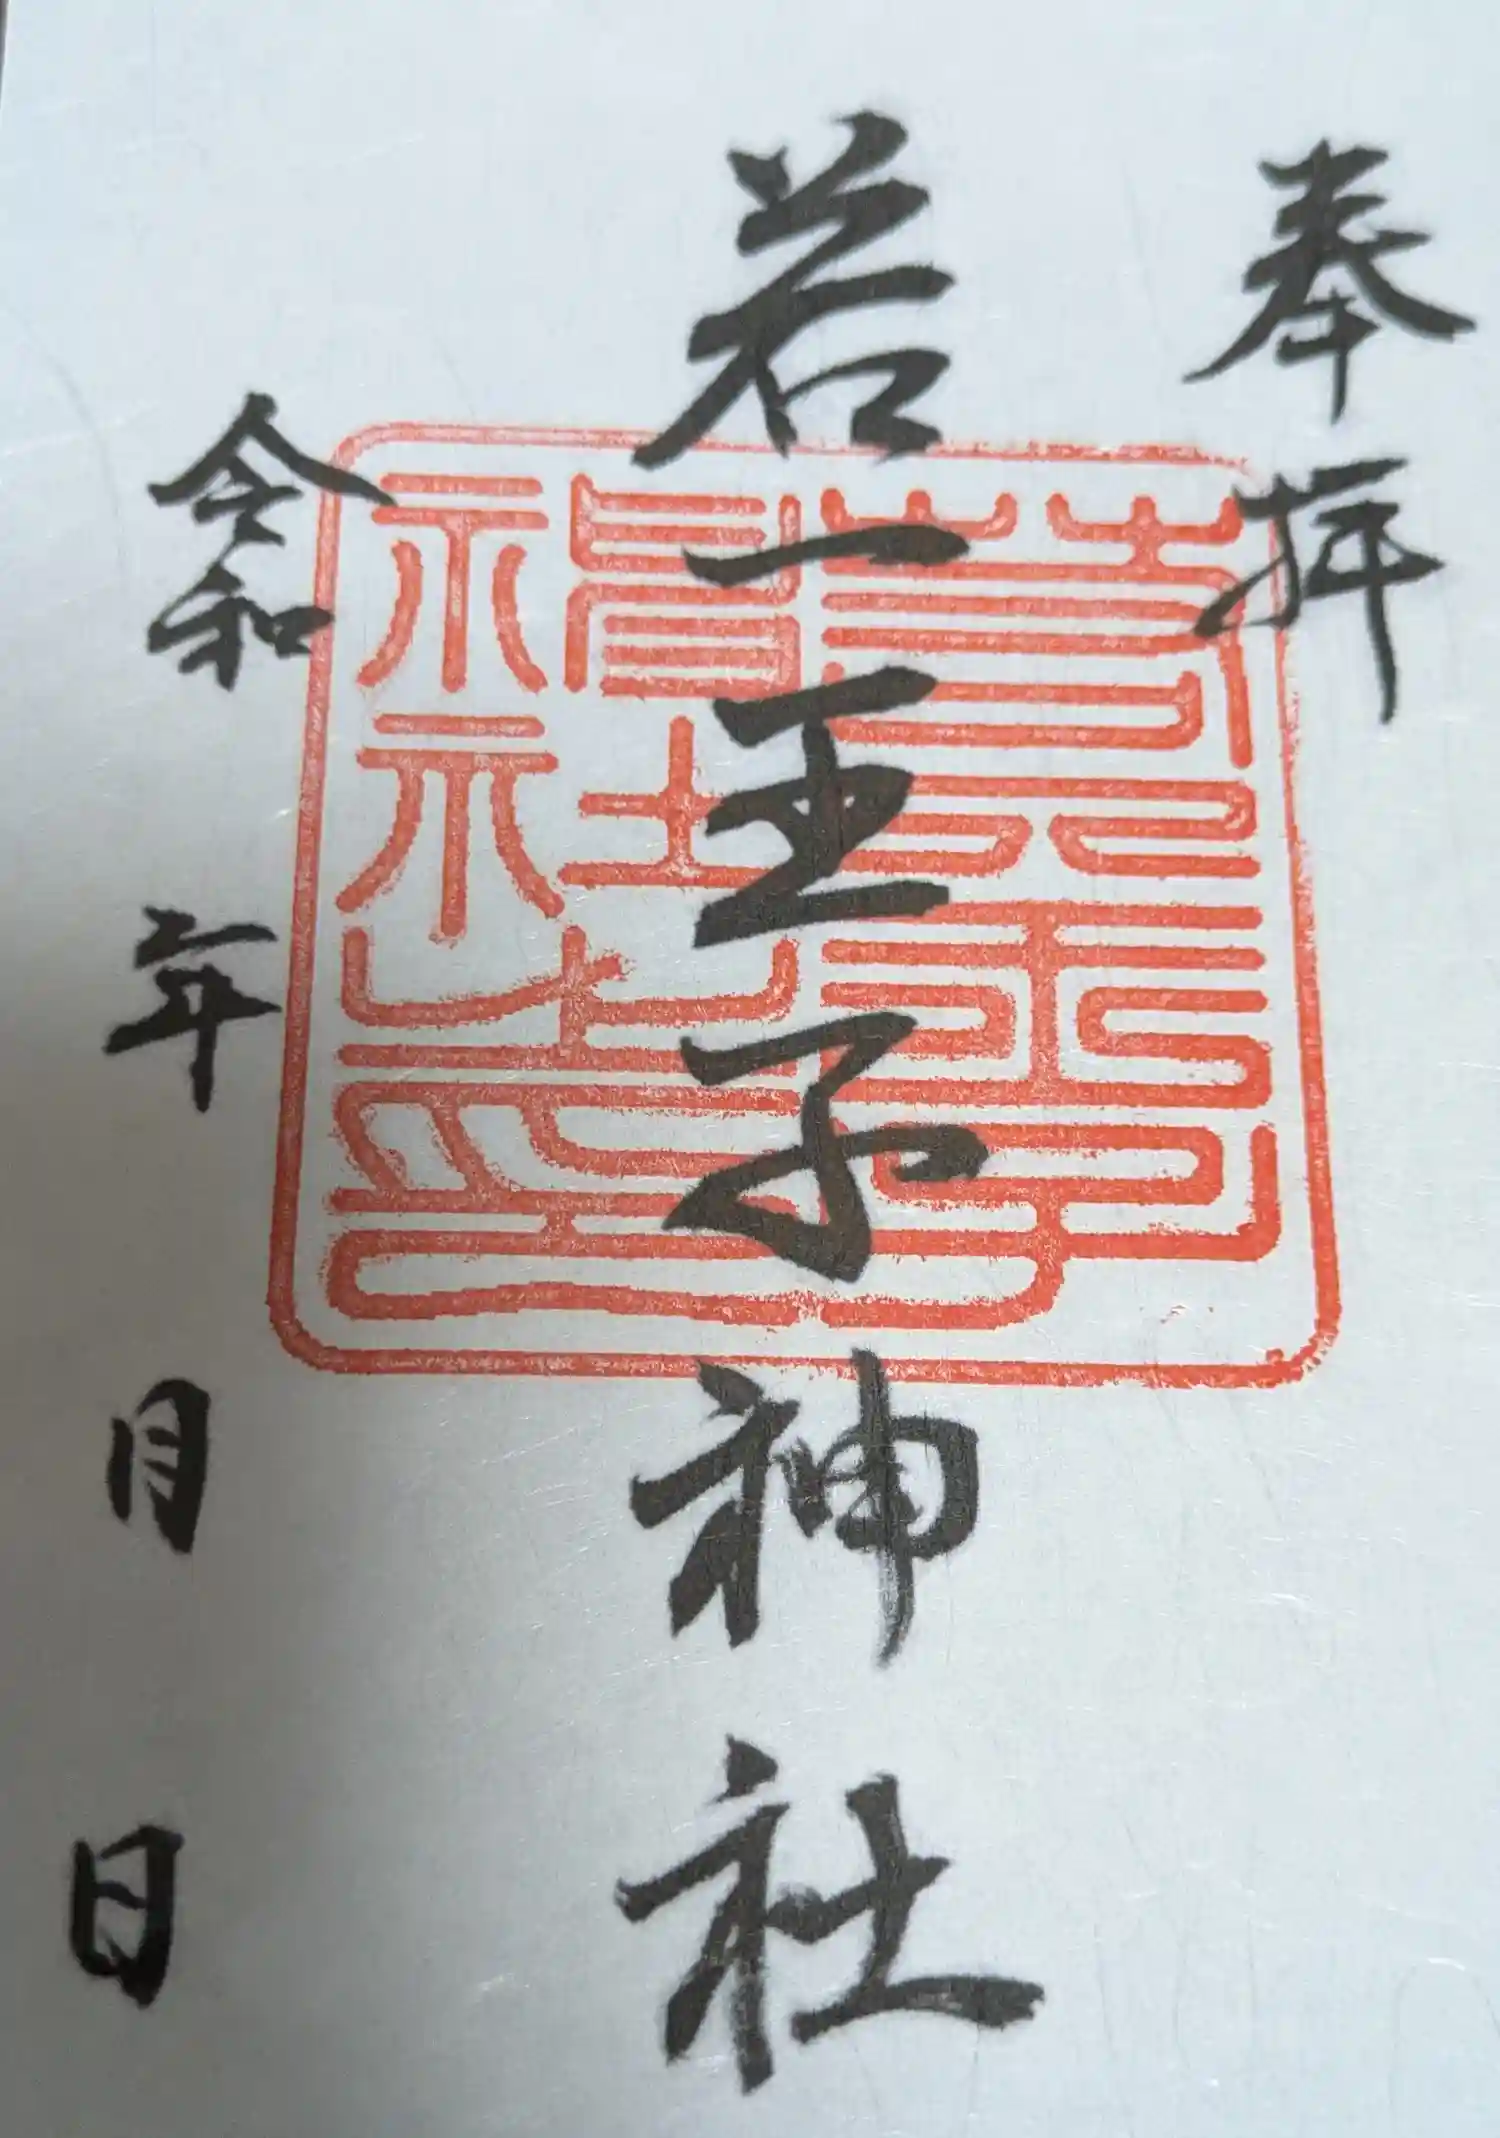 奉拝
若一王子神社
令和 年 月 日
若一王子
神社之印